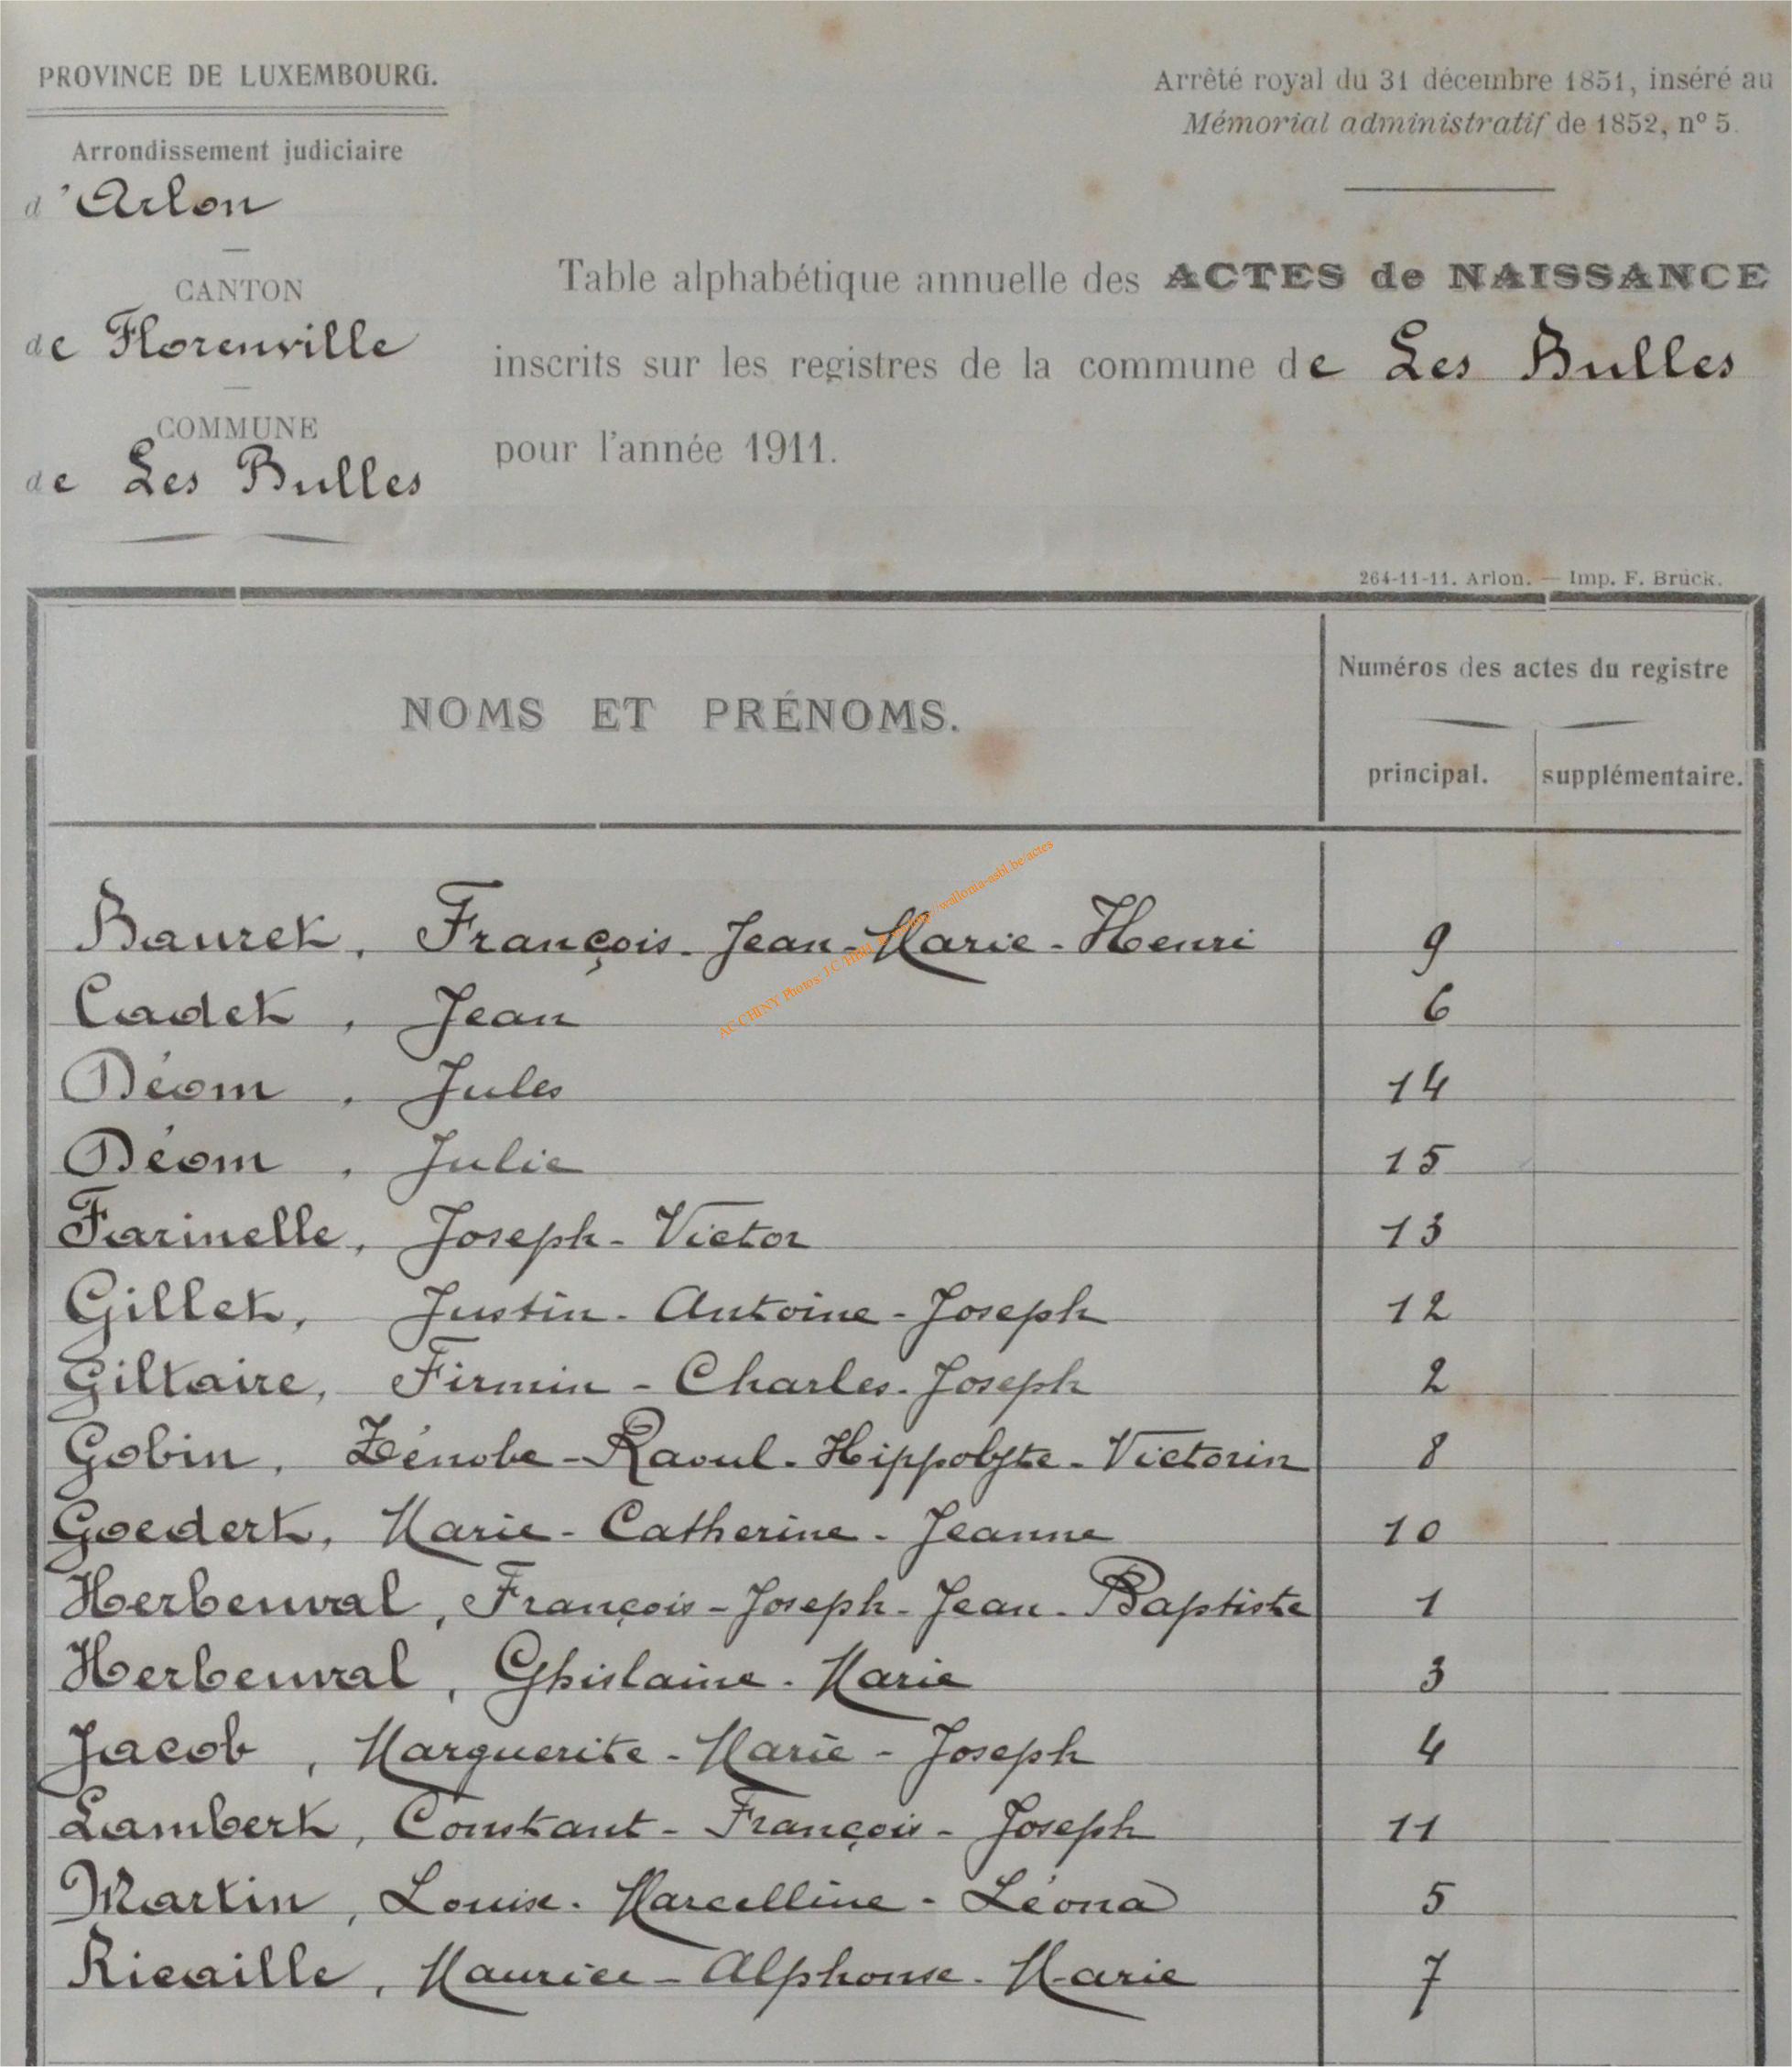 PROVINCE DE LUXEMBOURG.
Arrondissement judiciaire
d'Arlon
CANTON
de Florenville
COMMUNE
de Les Bulles
Arrêté royal du 31 décembre 1851, inséré au
Mémorial administratif de 1852, nº 5.
Table alphabétique annuelle des ACTES de NAISSANCE
inscrits sur les registres de la commune de Les Bulles
pour l'année 1911.
264-11-11. Arlon. — Imp. F. Brück.
NOMS ET PRÉNOMS.
Numéros des actes du registre
principal. supplémentaire.
Bauret, François-Jean-Marie-Henri 9
Cadet, Jean 6
Déom, Jules 14
Déom, Julie 15
Farinelle, Joseph-Victor 13
Gillet, Justin-Antoine-Joseph 12
Giltaire, Firmin-Charles-Joseph 2
Gobin, Zénobe-Raoul-Hippolyte-Victorin 8
Goedert, Marie-Catherine-Jeanne 10
Herbeuval, François-Joseph-Jean-Baptiste 1
Herbeuval, Ghislaine-Marie 3
Jacob, Marguerite-Marie-Joseph 4
Lambert, Constant-François-Joseph 11
Martin, Louise-Marcelline-Léona 5
Ricaille, Maurice-Alphonse-Marie 7
AC CHINY Photos: J.C wallonia-asbl.be/actes